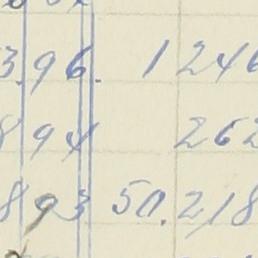 3.96. 1 246
894 262
893 50.218